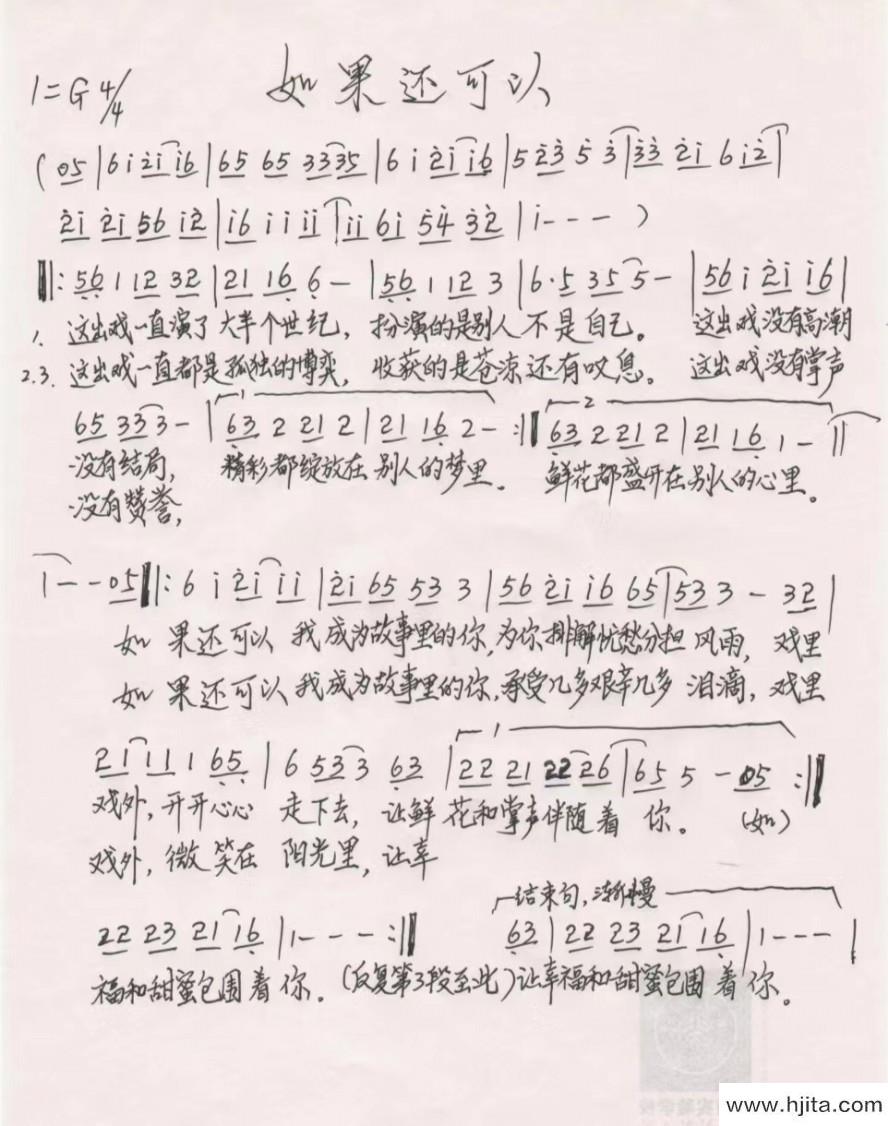 如果还可以
1=G 4/4
(05|6i2i i6|65 65 3335|6i2i i6|5 23 5 3|33 2i 6 i2|
2i 2i 56 i2|i6 i i ii|ii 6i 54 32|i - - - )
‖: 56 1 12 32|21 16 6 -|56 1 12 3|6·5 35 5 -|56 i 2i i6|
1. 这出戏一直演了大半个世纪，扮演的是别人不是自己。 这出戏没有高潮
2.3. 这出戏一直都是孤独的博弈，收获的是苍凉还有叹息。 这出戏没有掌声
65 33 3 -|1 63 2 21 2|21 16 2 - :‖ 2 63 2 21 2|21 16 1 - ‖
没有结局， 精彩都绽放在别人的梦里。 鲜花都盛开在别人的心里。
没有赞誉，
1 - - 05‖: 6 i 2i ii|2i 65 53 3|56 2i i6 65|53 3 - 32|
如果还可以 我成为故事里的你，为你排解忧愁分担风雨，戏里
如果还可以我成为故事里的你，承受几多艰辛几多泪滴，戏里
21 11 1 65|6 53 3 63|1 22 21 22 26|65 5 - 05 :‖
戏外，开开心心 走下去，让鲜花和掌声伴随着你。 (如)
戏外，微笑在 阳光里，让幸
结束句，渐慢
22 23 21 16|1 - - - :‖ 63|22 23 21 16|1 - - -|
福和甜蜜包围着你。(反复第3段至此)让幸福和甜蜜包围着你。
www.hjita.com